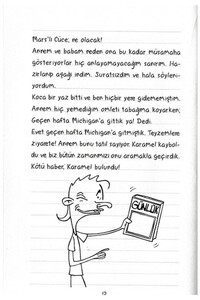 Mars'lı Cüce, ne olacak!
Annem ve babam neden ona bu kadar müsamaha
gösteriyorlar hiç anlayamayacağım sanırım. Ha-
zırlanıp aşağı indim. Suratsızdım ve hala söyleni-
yordum.
Koca bir yaz bitti ve ben hiçbir yere gidememiştim.
Annem hiç yemediğim omleti tabağıma koyarken;
Geçen hafta Michigan'a gittik ya! Dedi.
Evet geçen hafta Michigan'a gitmiştik. Teyzemlere
ziyarete! Annem bunu tatil sayıyor. Karamel kaybol-
du ve biz bütün zamanımızı onu aramakla geçirdik.
Kötü haber, Karamel bulundu!
GÜNLÜK